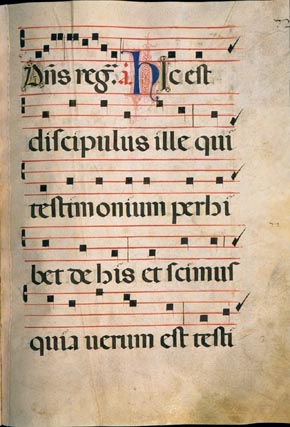 Dñs reg̃. a hIc est
discipulus ille qui
testimonium perhi
bet de his et scimus
quia uerum est testi